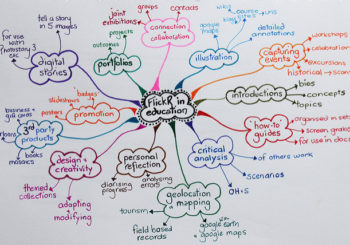 FlickR in
education
tell a story
in 5 images
for use with
digital
stories
joint
exhibitions
groups
contacts
connection
collaboration
projects
outcomes
portfolios
google maps
illustration
detailed
annotations
capturing
events
workshops
celebrations
excursions
historical
introductions
bios
concepts
topics
how-to
guides
organised in sets
screen grabs
for use in
critical
analysis
of others work
scenarios
OH+S
geolocation
mapping
tourism
field based
records
google earth
google maps
personal
reflection
analysing
errors
design +
creativity
themed
collections
adapting
modifying
3rd party
products
business +
gift cards
books
mosaics
promotion
badges
slideshows
posters